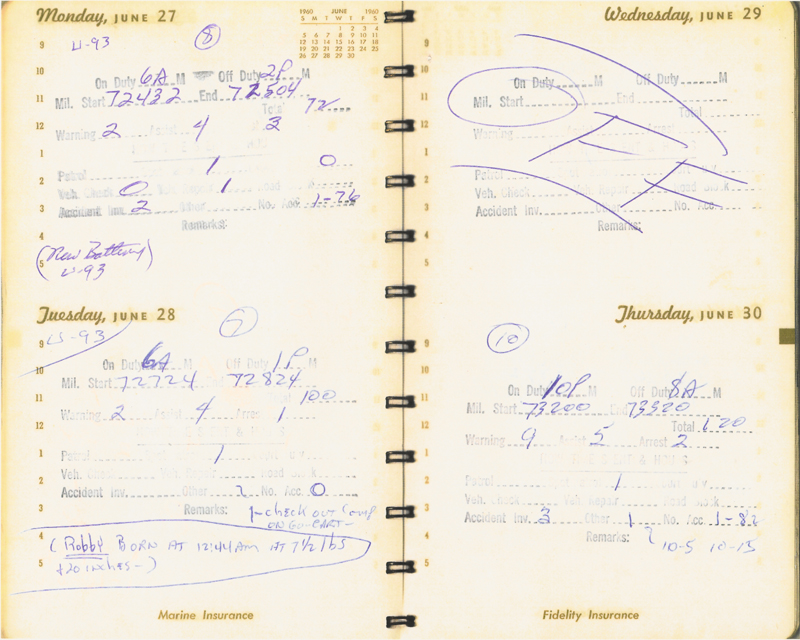 Monday, JUNE 27
1960 JUNE 1960
S M T W T F S
1 2 3 4
5 6 7 8 9 10 11
12 13 14 15 16 17 18
19 20 21 22 23 24 25
26 27 28 29 30
9 U-93 8
10 On Duty 6A M Off Duty 2P M
11 Mil. Start 72432 End 72504
Total 72
12 Warning 2 Assist 4 3
1
Patrol 1 0
2 Veh. Check 0 Veh. Repair 1 Road Block
3 Accident Inv. 2 Other No. Acc. 1-76
Remarks:
4
5 (New Battery)
U-93
Tuesday, JUNE 28
9 U-93
10 On Duty 6A M Off Duty 1P M
Mil. Start 72724 End 72824
11 Total 100
12 Warning 2 Assist 4 Arrest 1
1 Patrol 1
2 Veh. Check Veh. Repair Road Block
Accident Inv. Other No. Acc. 0
3 Remarks: 1-check out Comp
ON GO-CART-
4 (Robby BORN AT 12:44AM AT 7½ lbs
5 +20 inches-)
Marine Insurance
Wednesday, JUNE 29
9
10 On Duty M Off Duty M
11 Mil. Start End
Total
12 Warning Assist Arrest
1
Patrol
2 Veh. Check Veh. Repair Road Block
3 Accident Inv. Other No. Acc.
Remarks:
4
5
Thursday, JUNE 30
9 10
10 On Duty 10P M Off Duty 8A M
11 Mil. Start 73200 End 73320
Total 120
12 Warning 9 Assist 5 Arrest 2
1
Patrol 1
2 Veh. Check Veh. Repair Road Block
3 Accident Inv. 3 Other 1 No. Acc. 1-82
Remarks:
4 10-5 10-15
5
Fidelity Insurance